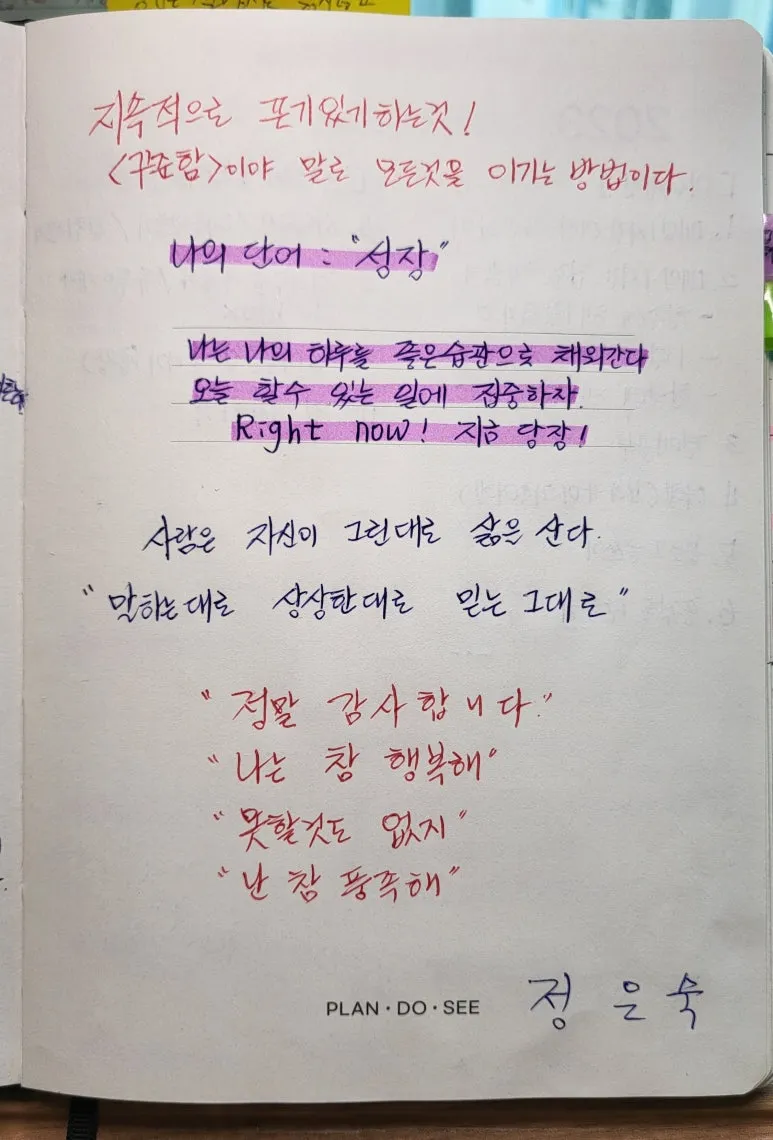 지속적으로 끈기있게하는것!
<꾸준함>이야 말로 모든것을 이기는 방법이다.
나의 단어 : "성장"
나는 나의 하루를 좋은습관으로 채워간다
오늘 할수 있는 일에 집중하자.
Right now! 지금 당장!
사람은 자신이 그린대로 삶을 산다.
"말하는대로 상상한대로 믿는 그대로"
"정말 감사합니다."
"나는 참 행복해"
"못할것도 없지"
"난 참 풍족해"
PLAN·DO·SEE
정은숙